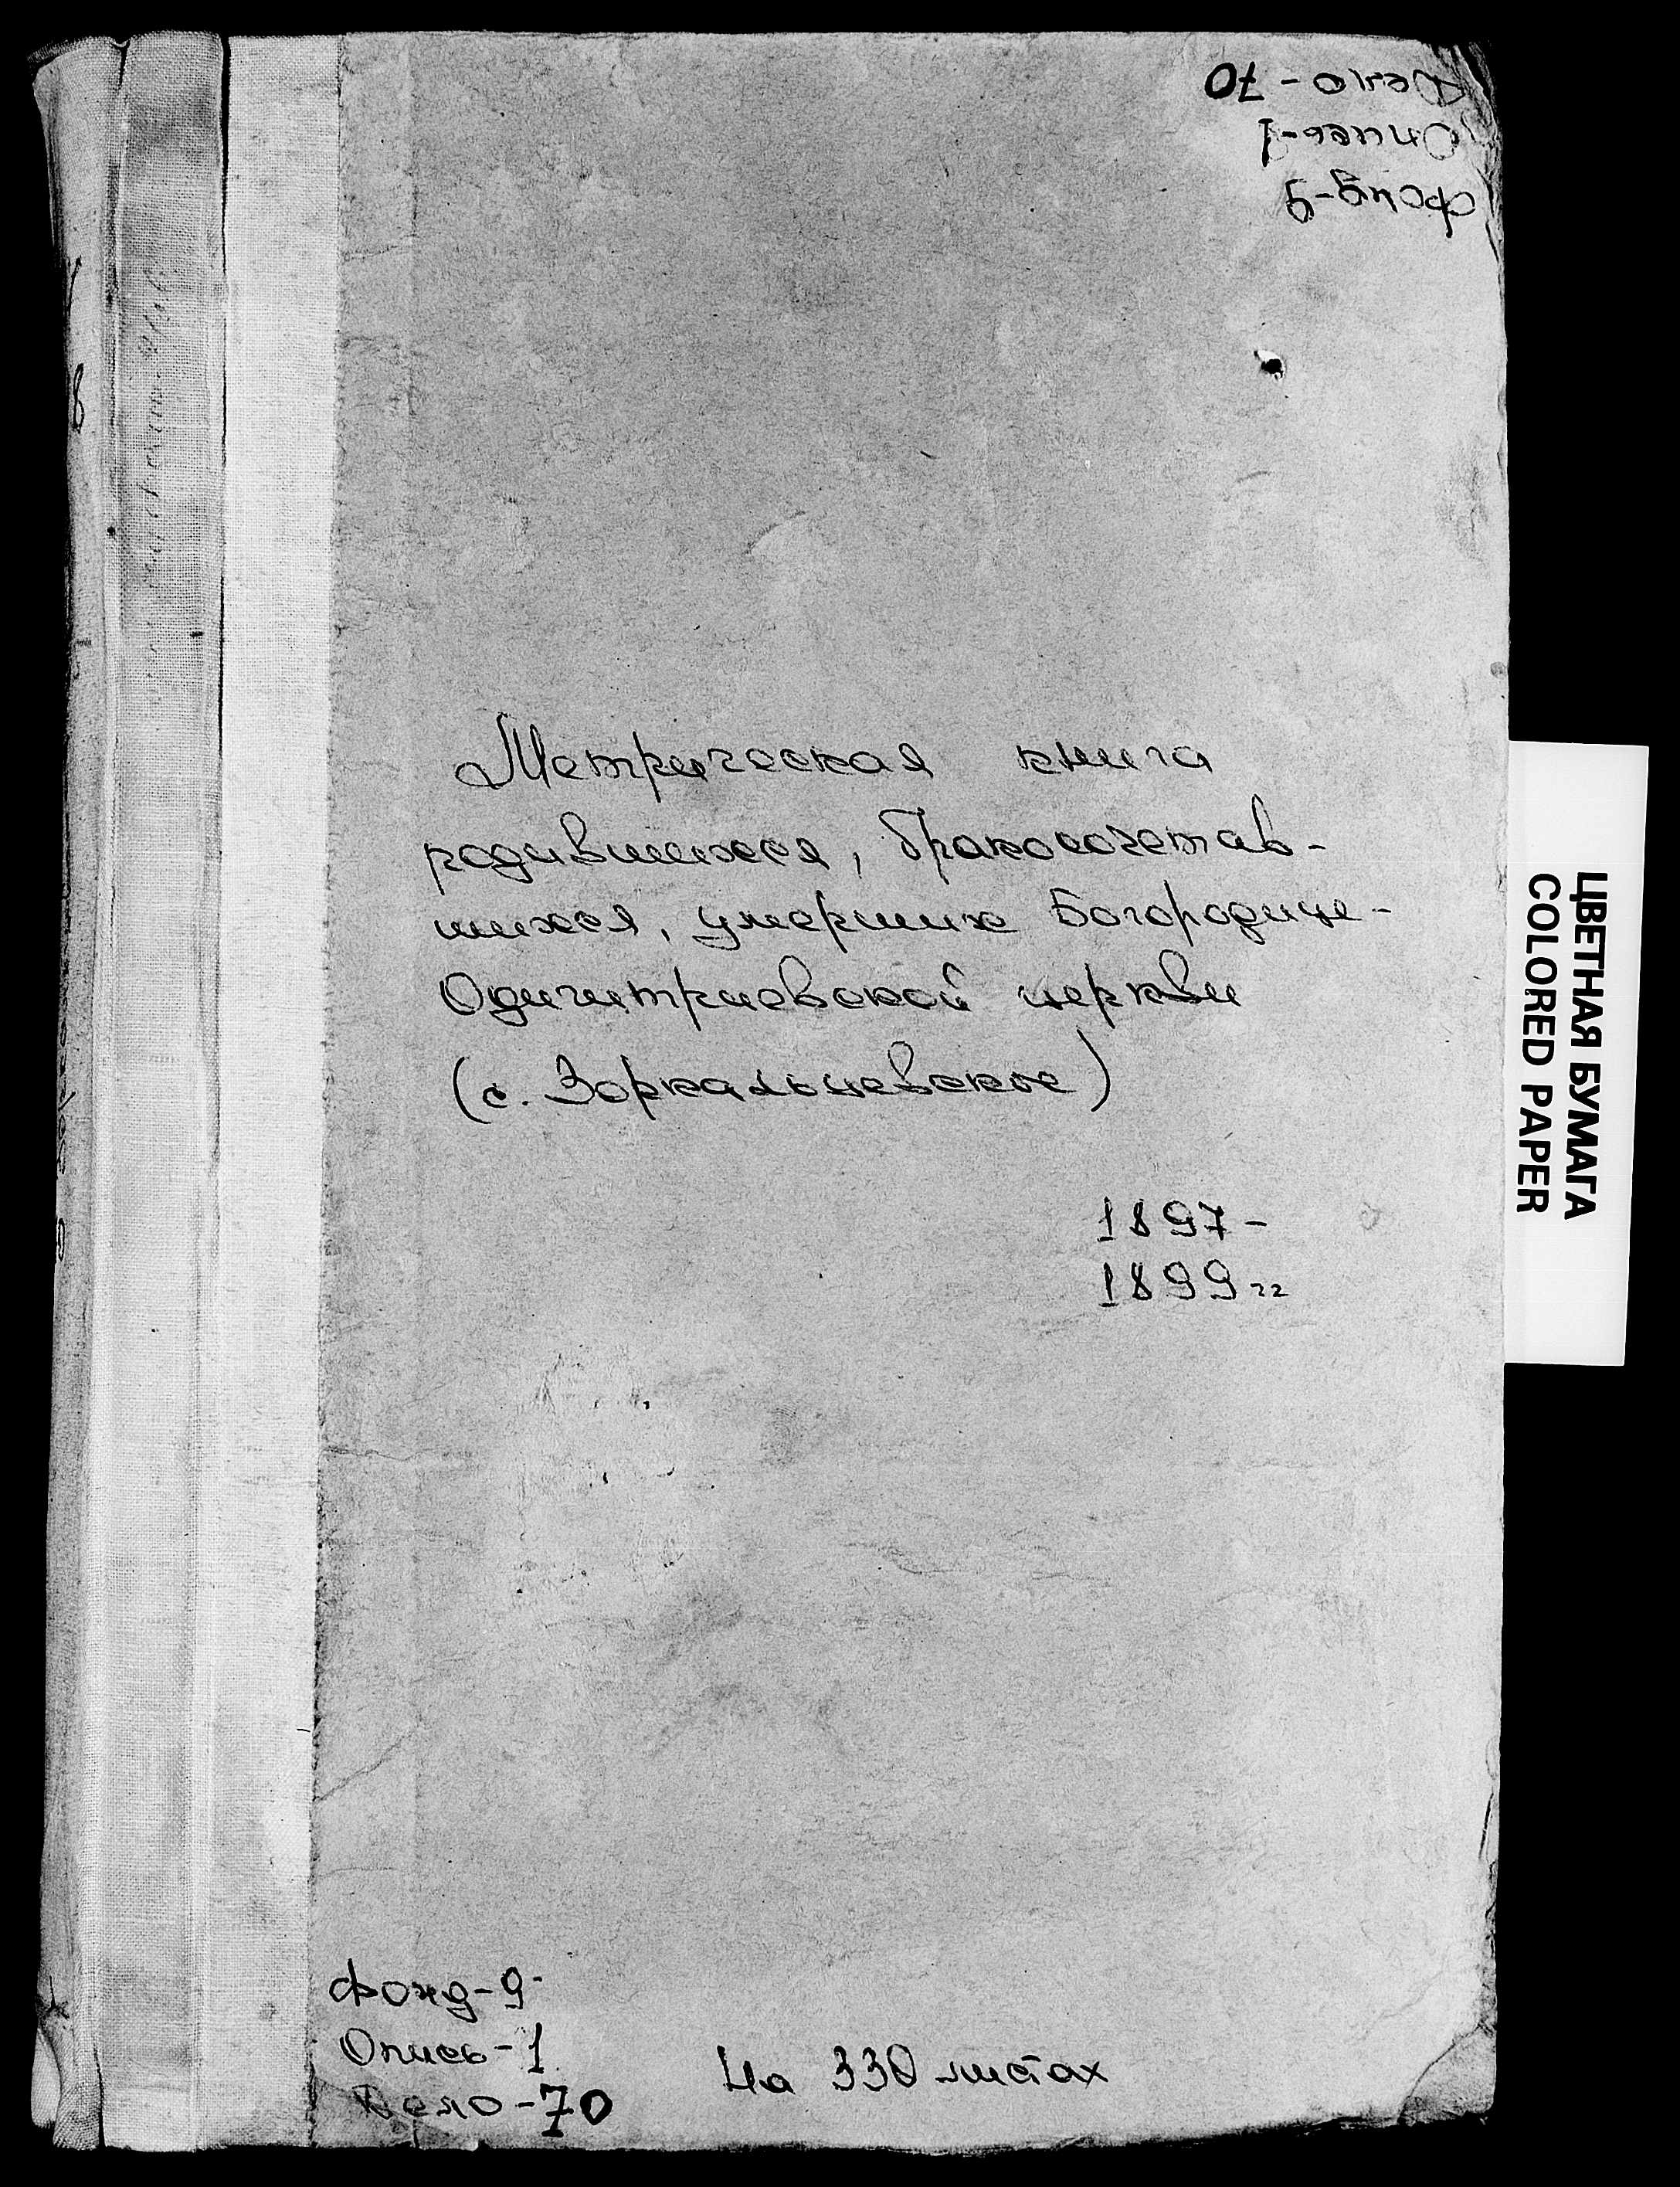 Дело - 70
Опись - 1
Фонд - 9
Метрическая книга
родившихся, бракосочетав-
шихся, умерших Богородице-
Одигитриевской церкви
(с. Зоркальцевское)
1897 -
1899 гг
ЦВЕТНАЯ БУМАГА
COLORED PAPER
Фонд - 9
Опись - 1
Дело - 70
На 330 листах